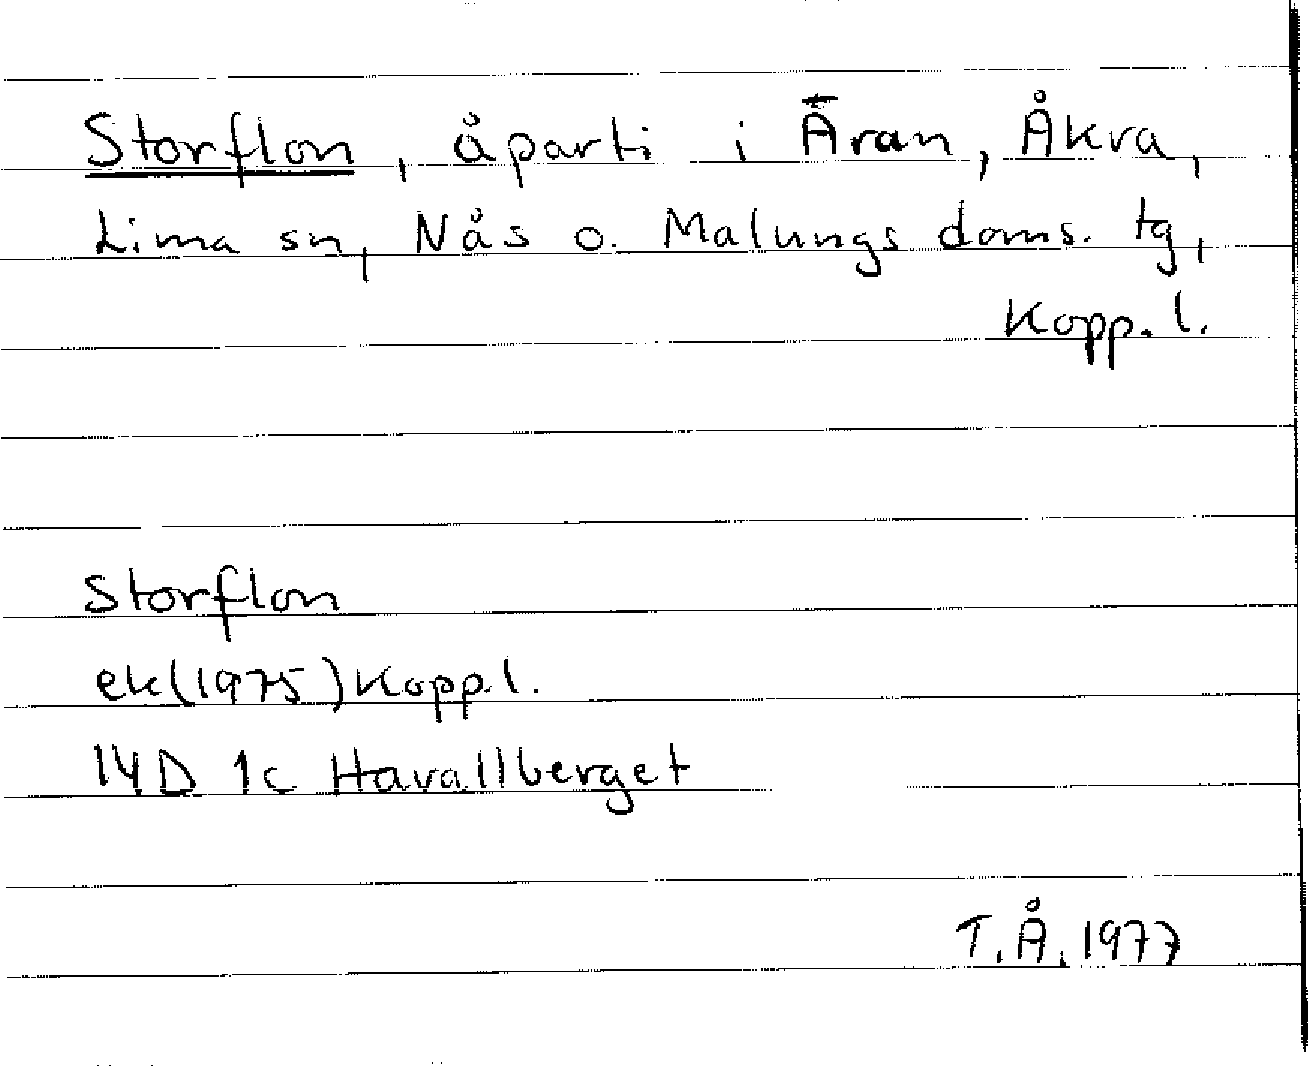 Storflon, åparti i Äran, Åkra,
Lima sn, Nås o. Malungs doms. tg,
Kopp. l.
Storflon
ek(1975) Kopp. l.
14D 1c Havallberget
T. Å. 1977